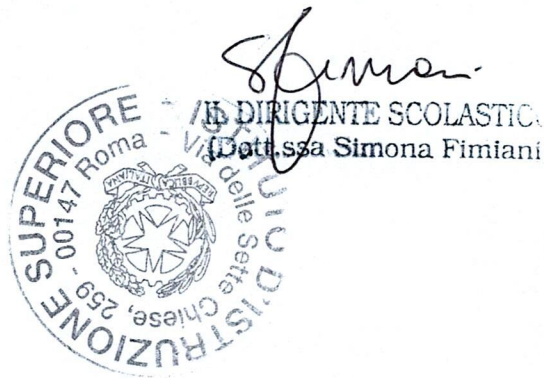 SFimiani
IL DIRIGENTE SCOLASTICO
(Dott.ssa Simona Fimiani
ISTITUTO D'ISTRUZIONE SUPERIORE
Via delle Sette Chiese, 259 - 00147 Roma
REPVBBLICA ITALIANA